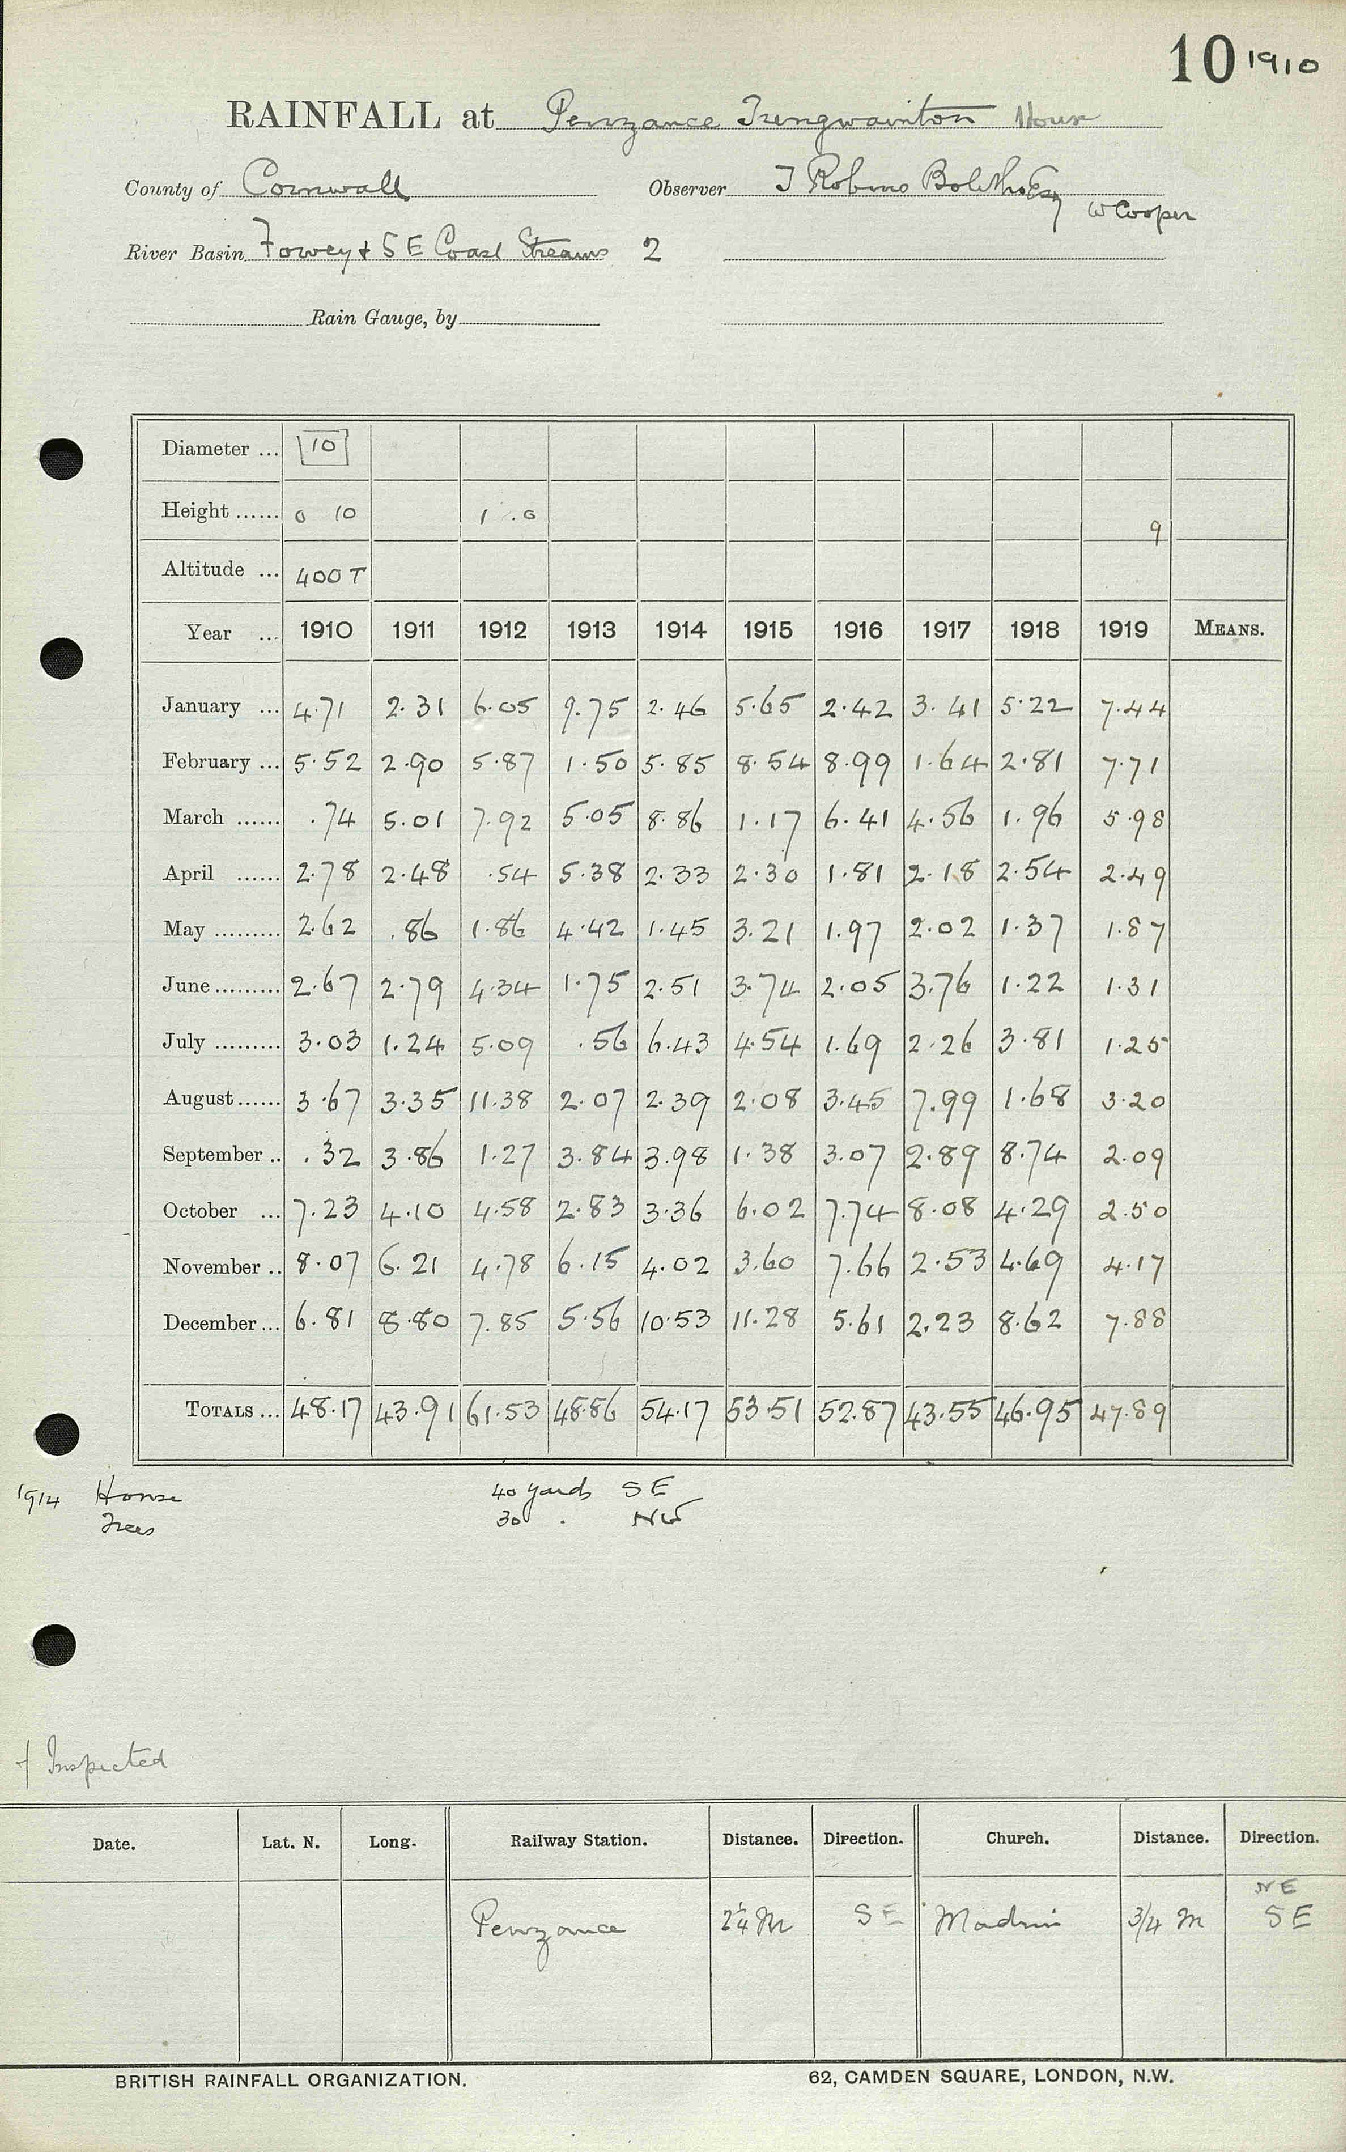 10 1910
RAINFALL at Penzance Trengwainton House
County of Cornwall Observer T Robins Bolitho Esq
W Cooper
River Basin Fowey + S E Coast Streams 2
Rain Gauge, by
Diameter ... 10
Height ...... 0 10 1 .0 9
Altitude ... 400 T
Year ... 1910 1911 1912 1913 1914 1915 1916 1917 1918 1919 MEANS.
January ... 4.71 2.31 6.05 9.75 2.46 5.65 2.42 3.41 5.22 7.44
February ... 5.52 2.90 5.87 1.50 5.85 8.54 8.99 1.64 2.81 7.71
March ...... .74 5.01 7.92 5.05 8.86 1.17 6.41 4.56 1.96 5.98
April ...... 2.78 2.48 .54 5.38 2.33 2.30 1.81 2.18 2.54 2.49
May ......... 2.62 .86 1.86 4.42 1.45 3.21 1.97 2.02 1.37 1.87
June ......... 2.67 2.79 4.34 1.75 2.51 3.74 2.05 3.76 1.22 1.31
July ......... 3.03 1.24 5.09 .56 6.43 4.54 1.69 2.26 3.81 1.25
August ...... 3.67 3.35 11.38 2.07 2.39 2.08 3.45 7.99 1.68 3.20
September .. .32 3.86 1.27 3.84 3.98 1.38 3.07 2.89 8.74 2.09
October ... 7.23 4.10 4.58 2.83 3.36 6.02 7.74 8.08 4.29 2.50
November .. 8.07 6.21 4.78 6.15 4.02 3.60 7.66 2.53 4.69 4.17
December ... 6.81 8.80 7.85 5.56 10.53 11.28 5.61 2.23 8.62 7.88
TOTALS ... 48.17 43.91 61.53 48.86 54.17 53.51 52.87 43.55 46.95 47.89
1914 House 40 yards SE
Trees 30 . NW
+ Inspected
Date. Lat. N. Long. Railway Station. Distance. Direction. Church. Distance. Direction.
NE
Penzance 2¼ M SE Madron 3/4 M SE
BRITISH RAINFALL ORGANIZATION. 62, CAMDEN SQUARE, LONDON, N.W.